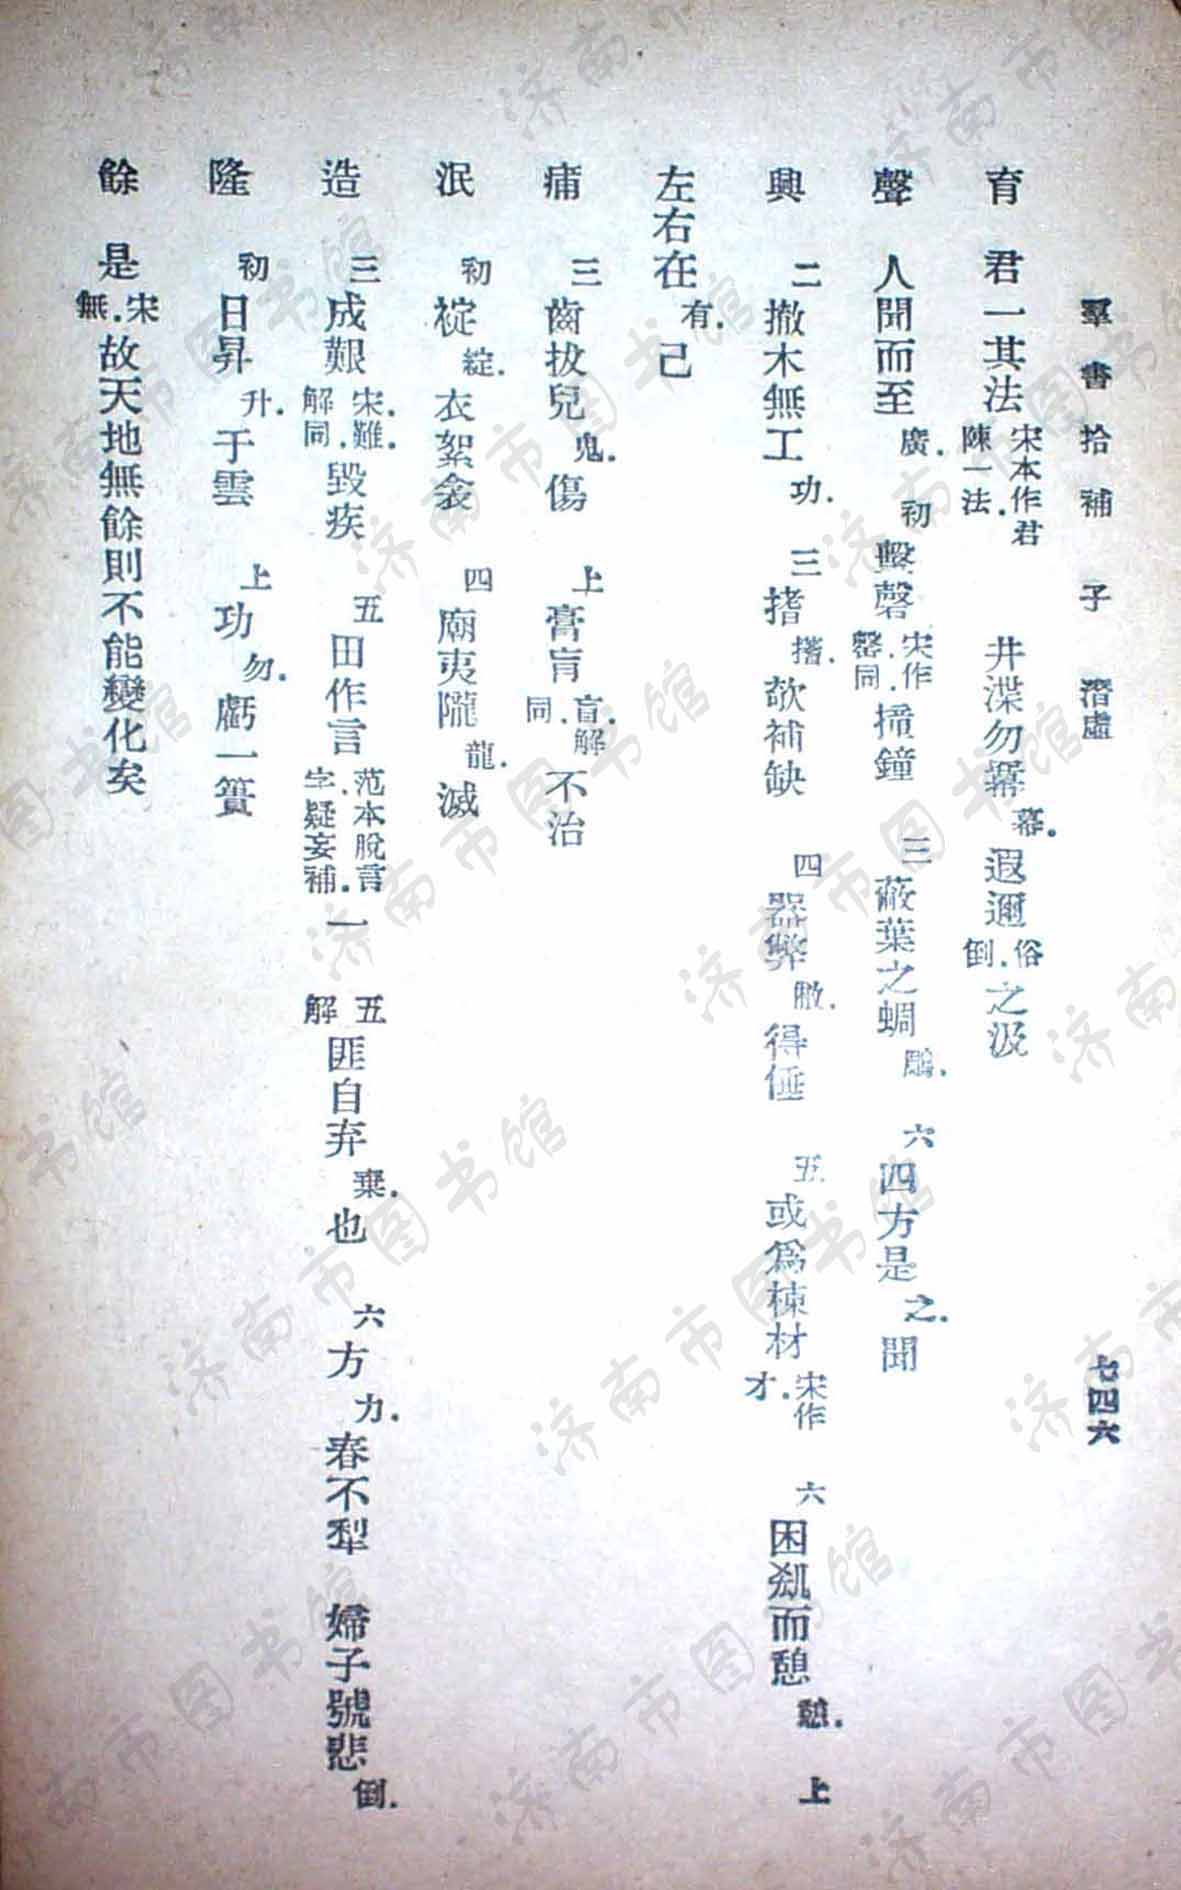 羣書拾補　子　潛虛　七四六
育　君一其法　宋本作君陳一法．　井渫勿幂　幕．　遐邇　俗倒．　之汲
聲　人聞而至　廣．　初　擊磬　宋作罄．同．　撞鐘　三　蔽葉之蜩　鵰．　六　四方是　之．　聞
興　二　撤木無工　功．　三　揩　攟．　欹補缺　四　器弊　敝．　得僊　五　或爲棟材　宋作才．　六　困𠞰而憩　憇．　上
左右在　有．　己
痡　三　齒拔兒　鬼．　傷　上　膏肓　盲．解同．　不治
泯　初　裞　綻．　衣絮衾　四　廟夷隴　龍．　滅
造　三　成艱　宋．難．解同．　毀疾　五　田作言　范本脫言字．疑妄補．　一　五解　匪自弃　棄．　也　六　方　力．　春不犁　婦子號悲　倒．
隆　初　日昇　升．　于雲　上　功　勿．　虧一簣
餘　是　宋無．　故天地無餘則不能變化矣
济南市图书馆